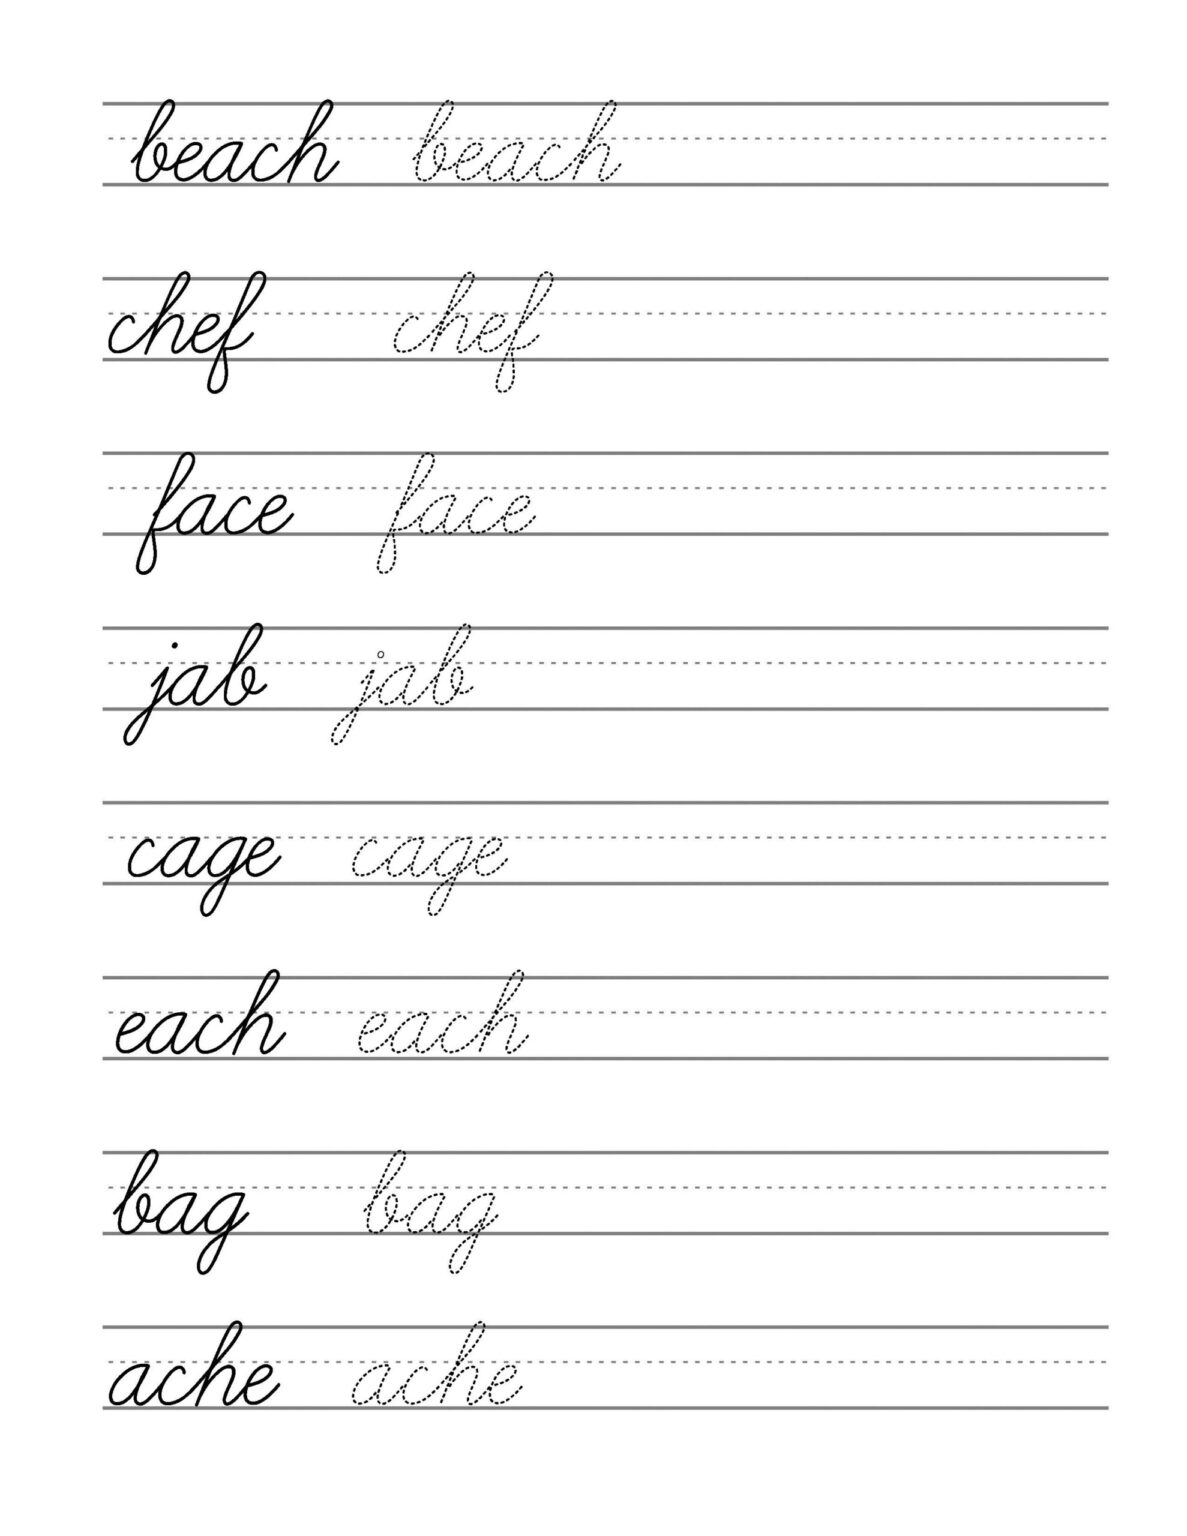 beach beach
chef chef
face face
jab jab
cage cage
each each
bag bag
ache ache